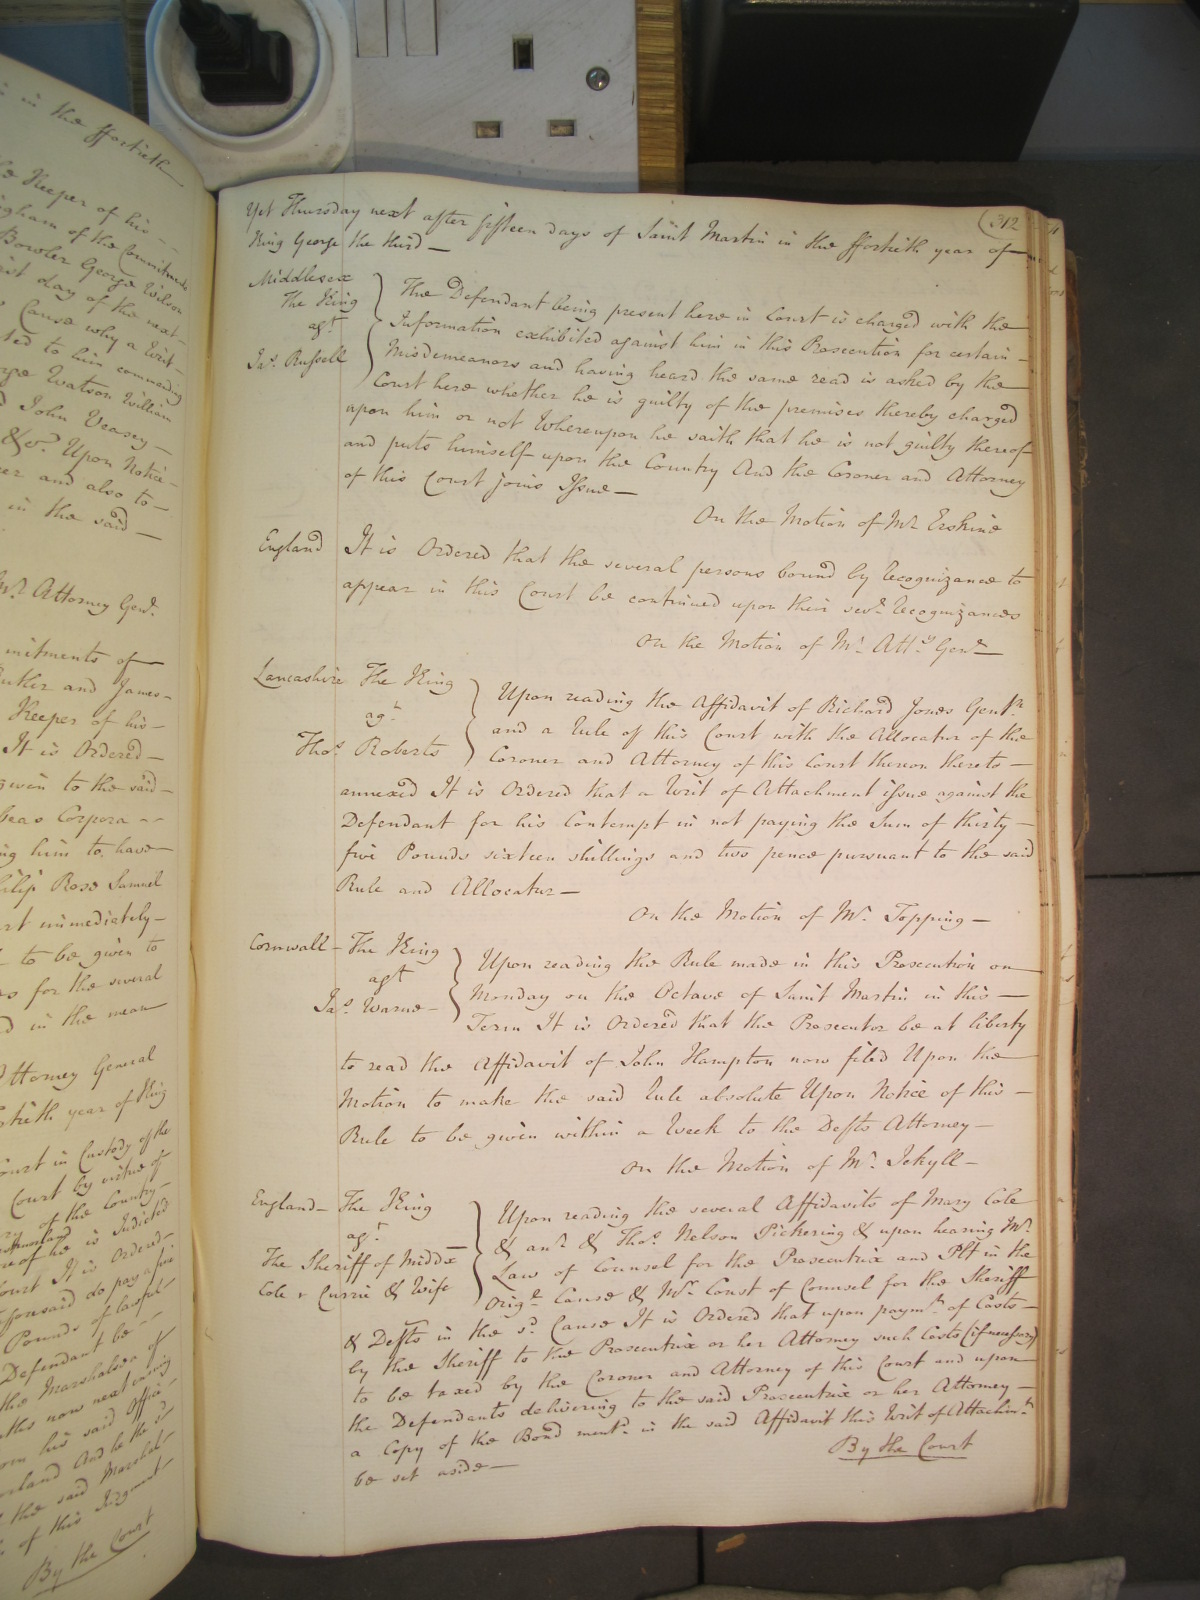 s in the ffortieth
the Keeper of his
ingham of the Commitment
Bowler George Wilson
first day of the next
Cause why a Writ
ted to him commanding
rge Watson William
d John Veasey
&c. Upon Notice
er and also to
in the said
Mr. Attorney Genl.
mitments of
unker and James
Keeper of his
It is Ordered
given to the said
beas Corpora
ng him to have
hilip Rose Samuel
rt immediately
to be given to
rs for the several
d in the mean
Attorney General
ortieth year of King
ourt in Custody of the
Court by virtue of
of the Country
reof he is Indicted
Court It is Ordered
fforesaid do pay a fine
Pounds of lawful
Defendant be
the Marshalsea of
nths now next ensuing
orm his said Office
orland And he the sd.
the said Marshal
of this Judgment
By the Court
312
Yet Thursday next after fifteen days of Saint Martin in the ffortieth year of
King George the third
Middlesex
The King
agt.
Jas. Russell
The Defendant being present here in Court is charged with the
Information exhibited against him in this Prosecution for certain
Misdemeanors and having heard the same read is asked by the
Court here whether he is guilty of the premises thereby charged
upon him or not Whereupon he saith that he is not guilty thereof
and puts himself upon the Country And the Coroner and Attorney
of this Court joins Issue
On the Motion of Mr. Erskine
England It is Ordered that the several persons bound by Recognizance to
appear in this Court be continued upon their sevl. Recognizances
On the Motion of Mr. Atty. Genl.
Lancashire The King
agt.
Thos. Roberts
Upon reading the Affidavit of Richard Jones Gentn.
and a Rule of this Court with the Allocatur of the
Coroner and Attorney of this Court thereon thereto
annexed It is Ordered that a Writ of Attachment issue against the
Defendant for his Contempt in not paying the Sum of thirty
five Pounds sixteen shillings and two pence pursuant to the said
Rule and Allocatur
On the Motion of Mr. Topping
Cornwall The King
agt
Jas. Warne
Upon reading the Rule made in this Prosecution on
Monday on the Octave of Saint Martin in this
Term It is Ordered that the Prosecutor be at liberty
to read the Affidavit of John Hampton now filed Upon the
Motion to make the said Rule absolute Upon Notice of this
Rule to be given within a Week to the Defts Attorney
On the Motion of Mr. Jekyll
England The King
agt.
The Sheriff of Middx
Cole v Currie & Wife
Upon reading the several Affidavits of Mary Cole
& anr. & Thos. Nelson Pickering & upon hearing Mr.
Law of Counsel for the Prosecutrix and Plt in the
Origl. Cause & Mr. Const of Counsel for the Sheriff
& Defts in the sd. Cause It is Ordered that upon paymt. of Costs
by the Sheriff to the Prosecutrix or her Attorney such Costs (if necessary)
to be taxed by the Coroner and Attorney of this Court and upon
the Defendants delivering to the said Prosecutrix or her Attorney
a Copy of the Bond mentd. in the said Affidavit this Writ of Attachmt.
be set aside
By the Court